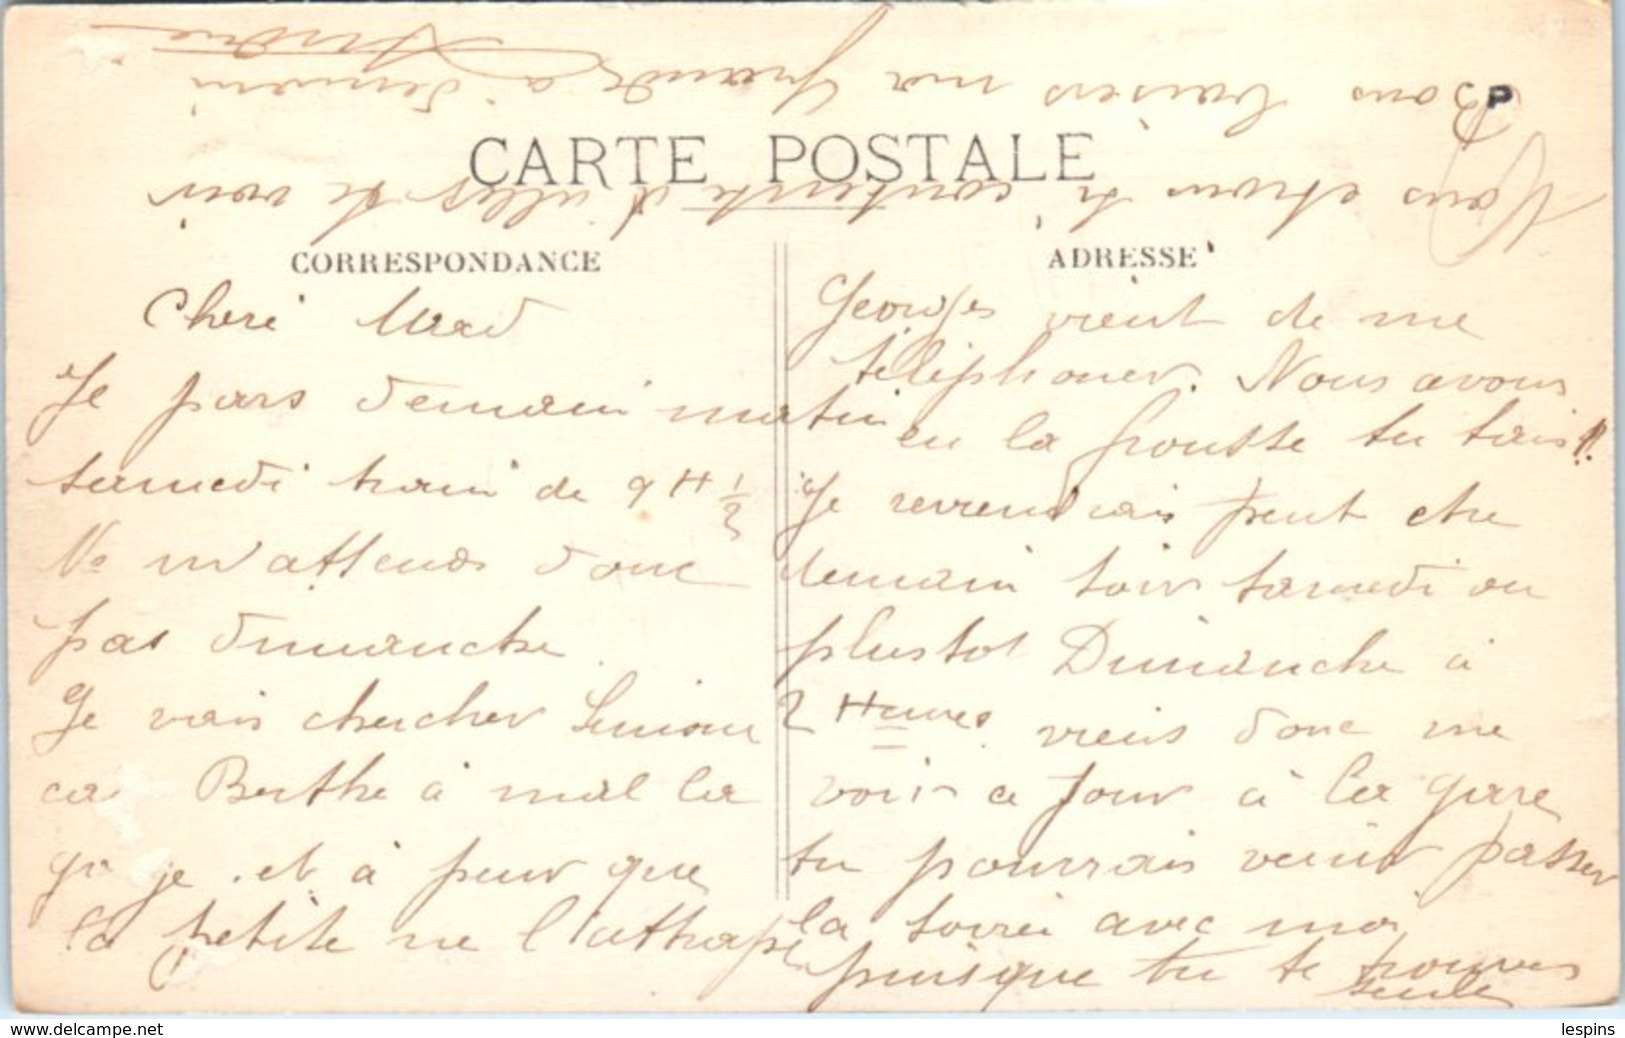 CARTE POSTALE
CORRESPONDANCE
Cheri Mad
Je pars demain matin
samedi train de 9 H 1/2
Ne m'attends donc
pas dimanche.
Je vais chercher Simone
car Berthe à mal la
gorge et à peur que
la petite ne l'attrape
ADRESSE
Georges vient de me
téléphoner. Nous avons
eu la frousse tu sais!!
Je reviendrais peut etre
demain soir samedi ou
plustot Dimanche à
2 Heures viens donc me
voir ce jour à la gare
tu pourrais venir passer
la soirée avec moi
puisque tu te trouves
seule
Nous etions si contente d'allez te voir
Bons baisers ma Grande à demain
Andrée
P
www.delcampe.net
lespins